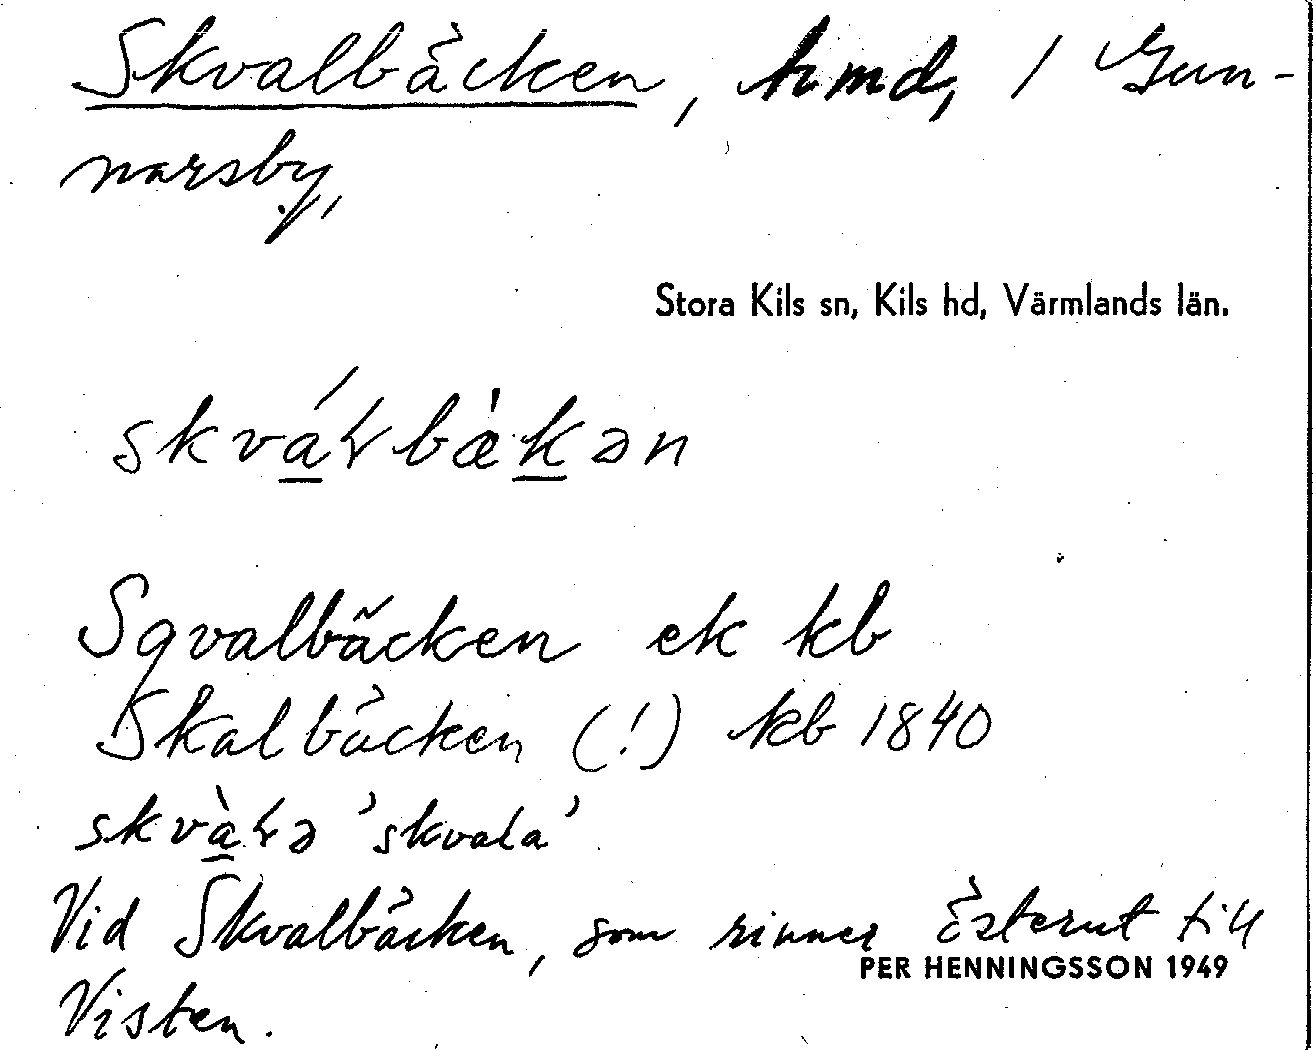 Skvalbäcken, hmd, 1 Gun-
narsby,
Stora Kils sn, Kils hd, Värmlands län.
skváɽbæ̀kən
Sqvalbäcken ek kb
Skalbäcken (!) kb 1840
skvàɽə 'skvala'
Vid Skvalbäcken, som rinner österut till
PER HENNINGSSON 1949
Visten.